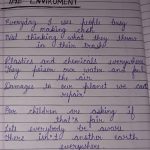 THE ENVIROMENT
Everyday I see people busy
making cash
Not thinking what they throw
in their trash
Plastics and chemicals everywhere
They poison our water and pollute
the air
Damages to our planet we can't
repair
Our children are asking if
that's fair
Lets everybody be aware
There isn't another earth
everywhere